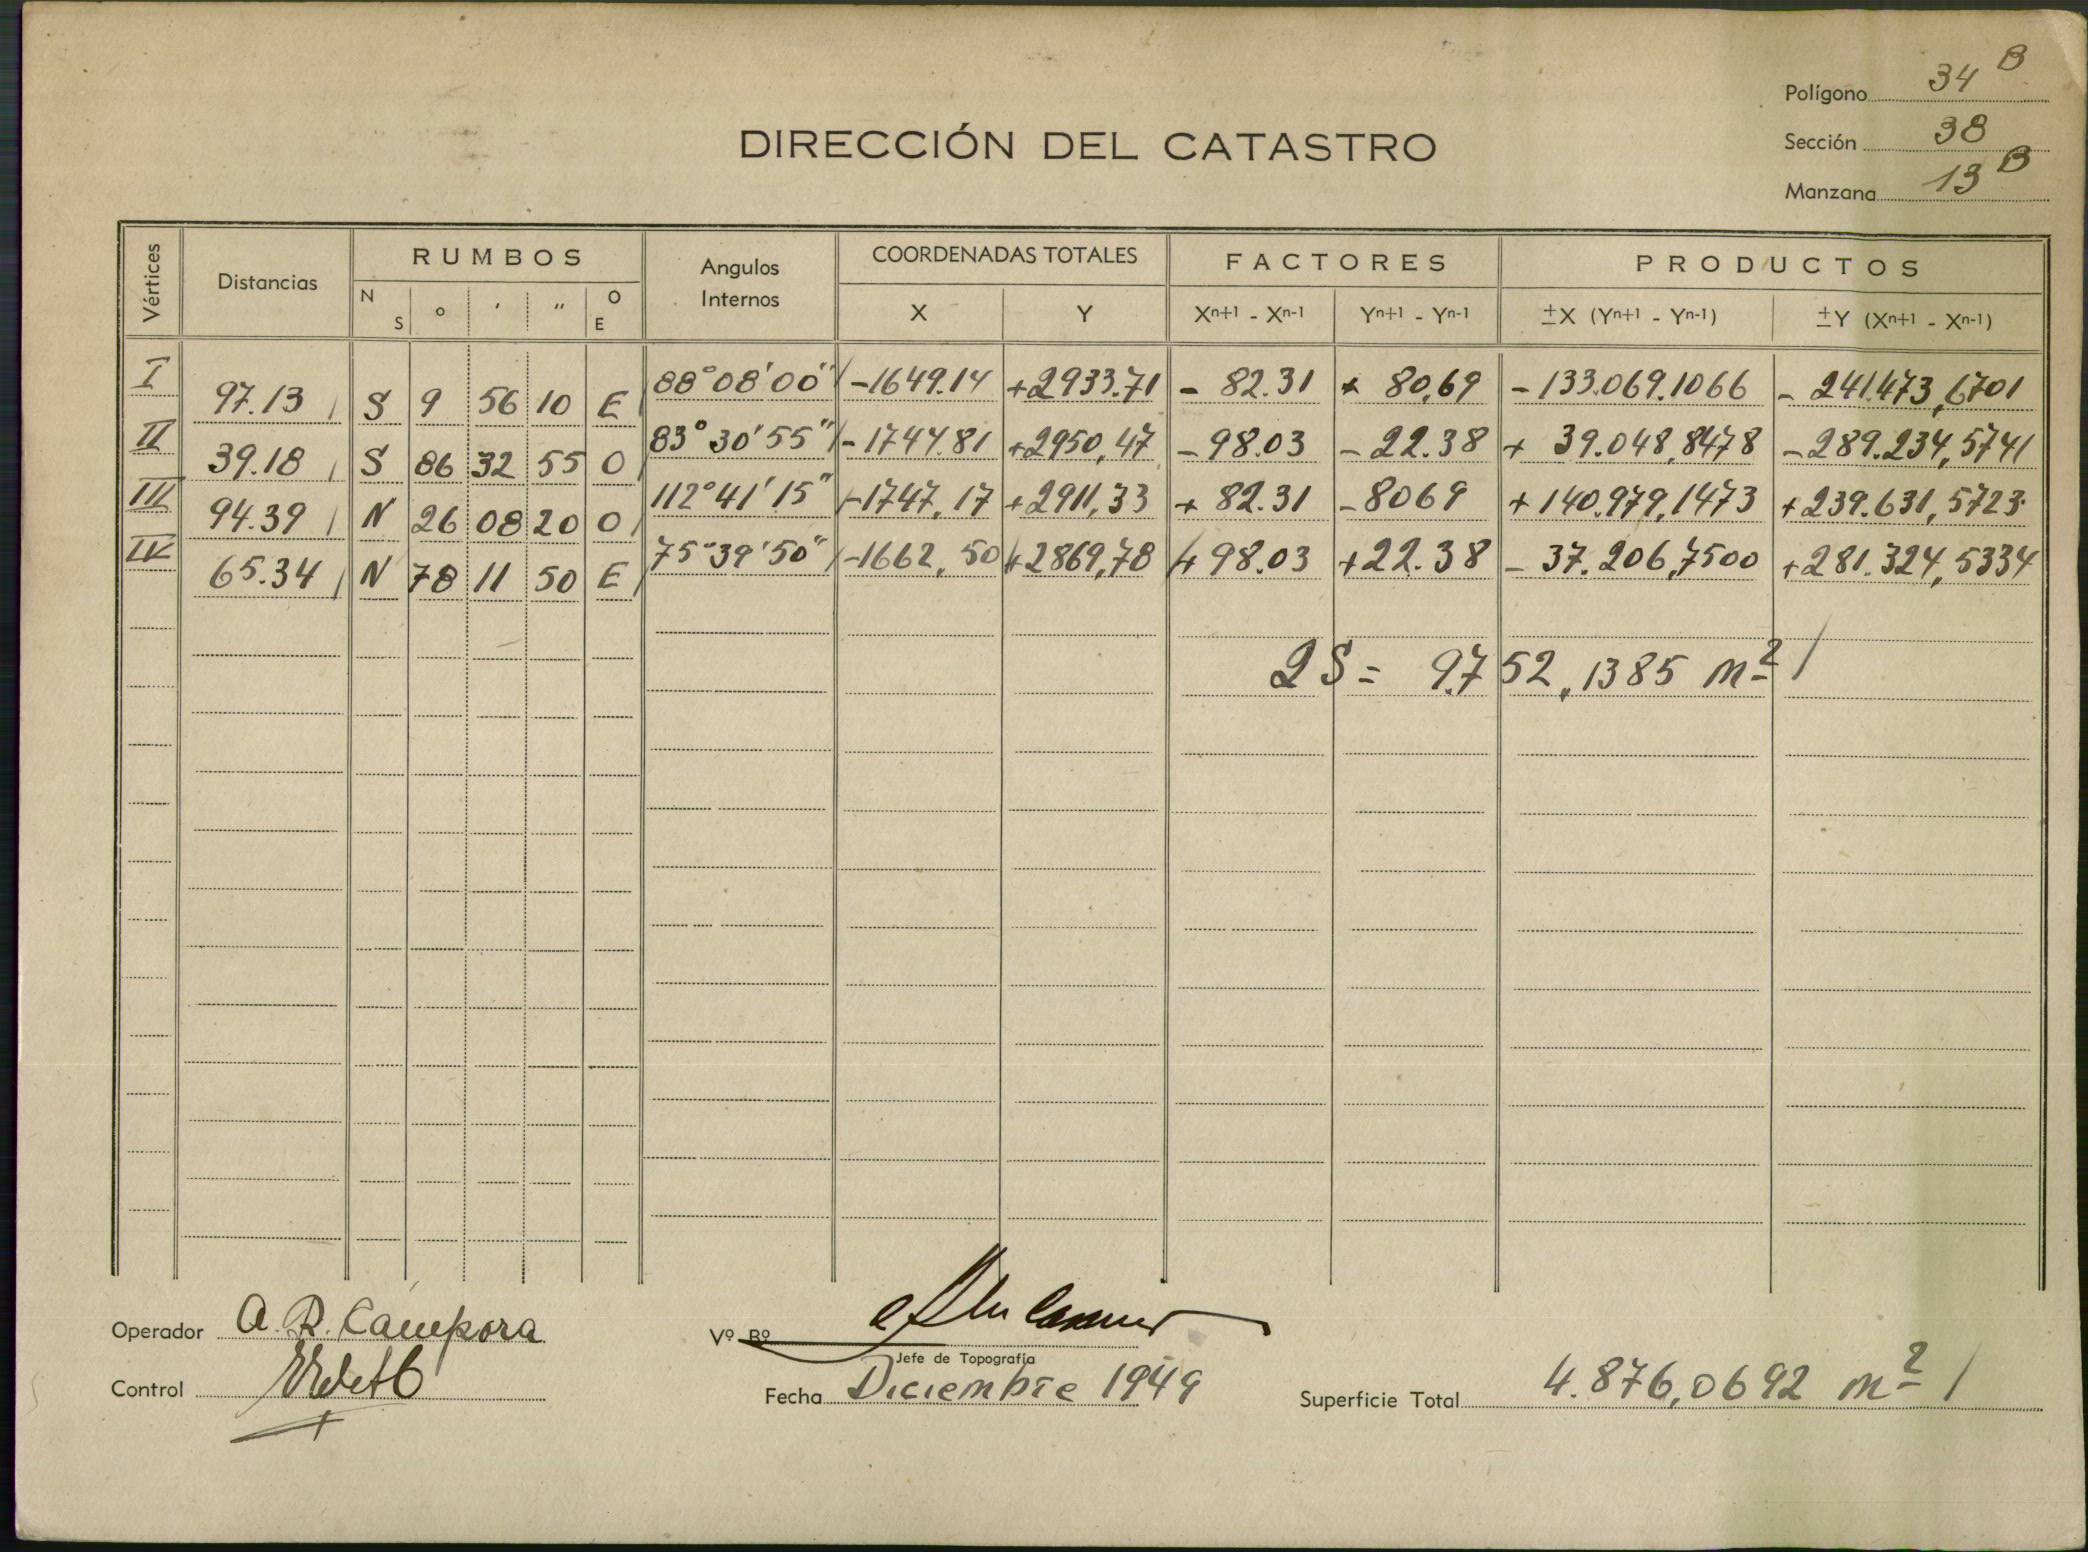 Polígono 34 B
Sección 38
Manzana 13 B
DIRECCIÓN DEL CATASTRO
Vértices Distancias RUMBOS Angulos Internos COORDENADAS TOTALES FACTORES PRODUCTOS
N S ° ' " O E X Y Xn+1 - Xn-1 Yn+1 - Yn-1 ±X (Yn+1 - Yn-1) ±Y (Xn+1 - Xn-1)
I 97.13 S 9 56 10 E 88°08'00" -1649.14 +2933.71 - 82.31 + 80,69 - 133.069.1066 - 241.473,6701
II 39.18 S 86 32 55 O 83°30'55" -1744.81 +2950,47 - 98.03 - 22.38 + 39.048,8478 - 289.234,5741
III 94.39 N 26 08 20 O 112°41'15" -1747,17 +2911,33 + 82.31 - 8069 + 140.979,1473 + 239.631,5723
IV 65.34 N 78 11 50 E 75°39'50" -1662,50 +2869,78 + 98.03 + 22.38 - 37.206,7500 + 281.324,5334
2S = 9.752,1385 m²
Operador A. R. Cámpora
Vº Bº
Jefe de Topografía
Control
Fecha Diciembre 1949
Superficie Total 4.876,0692 m²